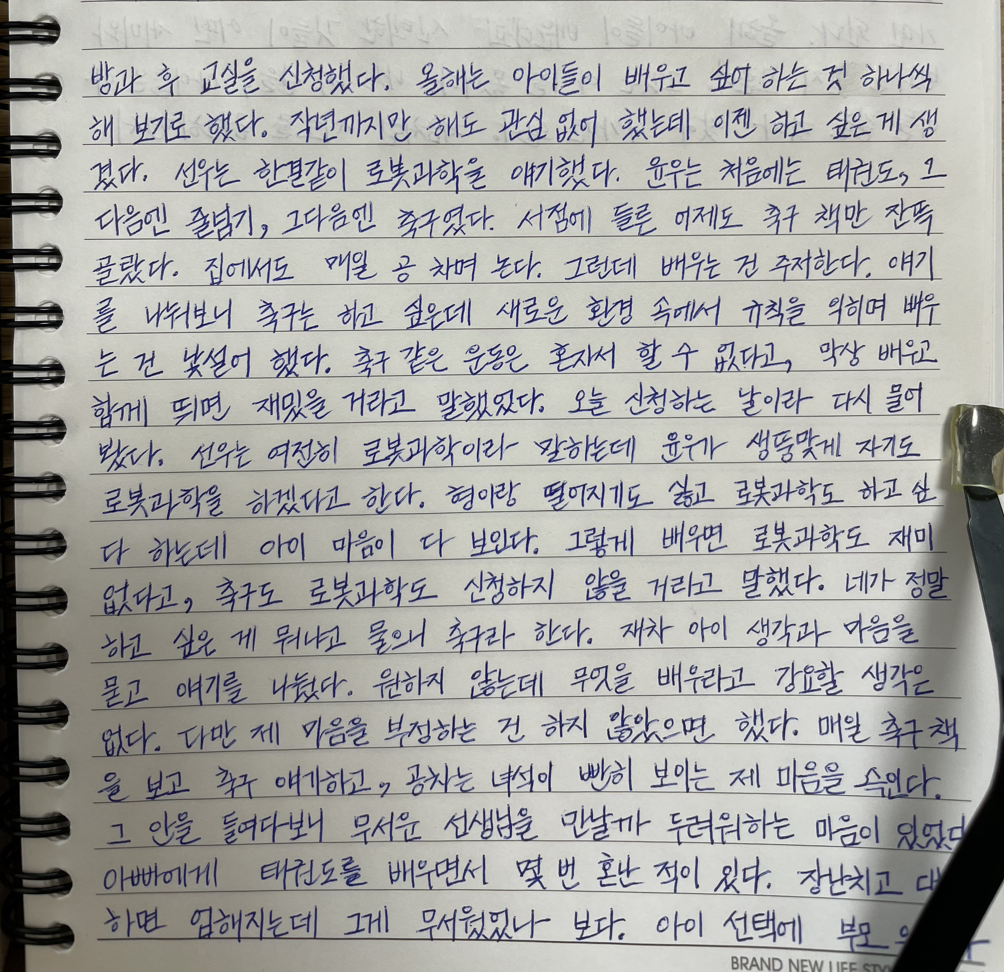 방과 후 교실을 신청했다. 올해는 아이들이 배우고 싶어 하는 것 하나씩
해 보기로 했다. 작년까지만 해도 관심 없어 했는데 이젠 하고 싶은 게 생
겼다. 선우는 한결같이 로봇과학을 얘기했다. 윤우는 처음에는 태권도, 그
다음엔 줄넘기, 그다음엔 축구였다. 서점에 들른 어제도 축구 책만 잔뜩
골랐다. 집에서도 매일 공 차며 논다. 그런데 배우는 건 주저한다. 얘기
를 나눠보니 축구는 하고 싶은데 새로운 환경 속에서 규칙을 익히며 배우
는 건 낯설어 했다. 축구 같은 운동은 혼자서 할 수 없다고, 막상 배우고
함께 뛰면 재밌을 거라고 말했었다. 오늘 신청하는 날이라 다시 물어
봤다. 선우는 여전히 로봇과학이라 말하는데 윤우가 생뚱맞게 자기도
로봇과학을 하겠다고 한다. 형이랑 떨어지기도 싫고 로봇과학도 하고 싶
다 하는데 아이 마음이 다 보인다. 그렇게 배우면 로봇과학도 재미
없다고, 축구도 로봇과학도 신청하지 않을 거라고 말했다. 네가 정말
하고 싶은 게 뭐냐고 물으니 축구라 한다. 재차 아이 생각과 마음을
묻고 얘기를 나눴다. 원하지 않는데 무엇을 배우라고 강요할 생각은
없다. 다만 제 마음을 부정하는 건 하지 않았으면 했다. 매일 축구 책
을 보고 축구 얘기하고, 공차는 녀석이 빤히 보이는 제 마음을 속인다.
그 안을 들여다보니 무서운 선생님을 만날까 두려워하는 마음이 있었다
아빠에게 태권도를 배우면서 몇 번 혼난 적이 있다. 장난치고
하면 엄해지는데 그게 무서웠었나 보다. 아이 선택에 부모
BRAND NEW LIFE